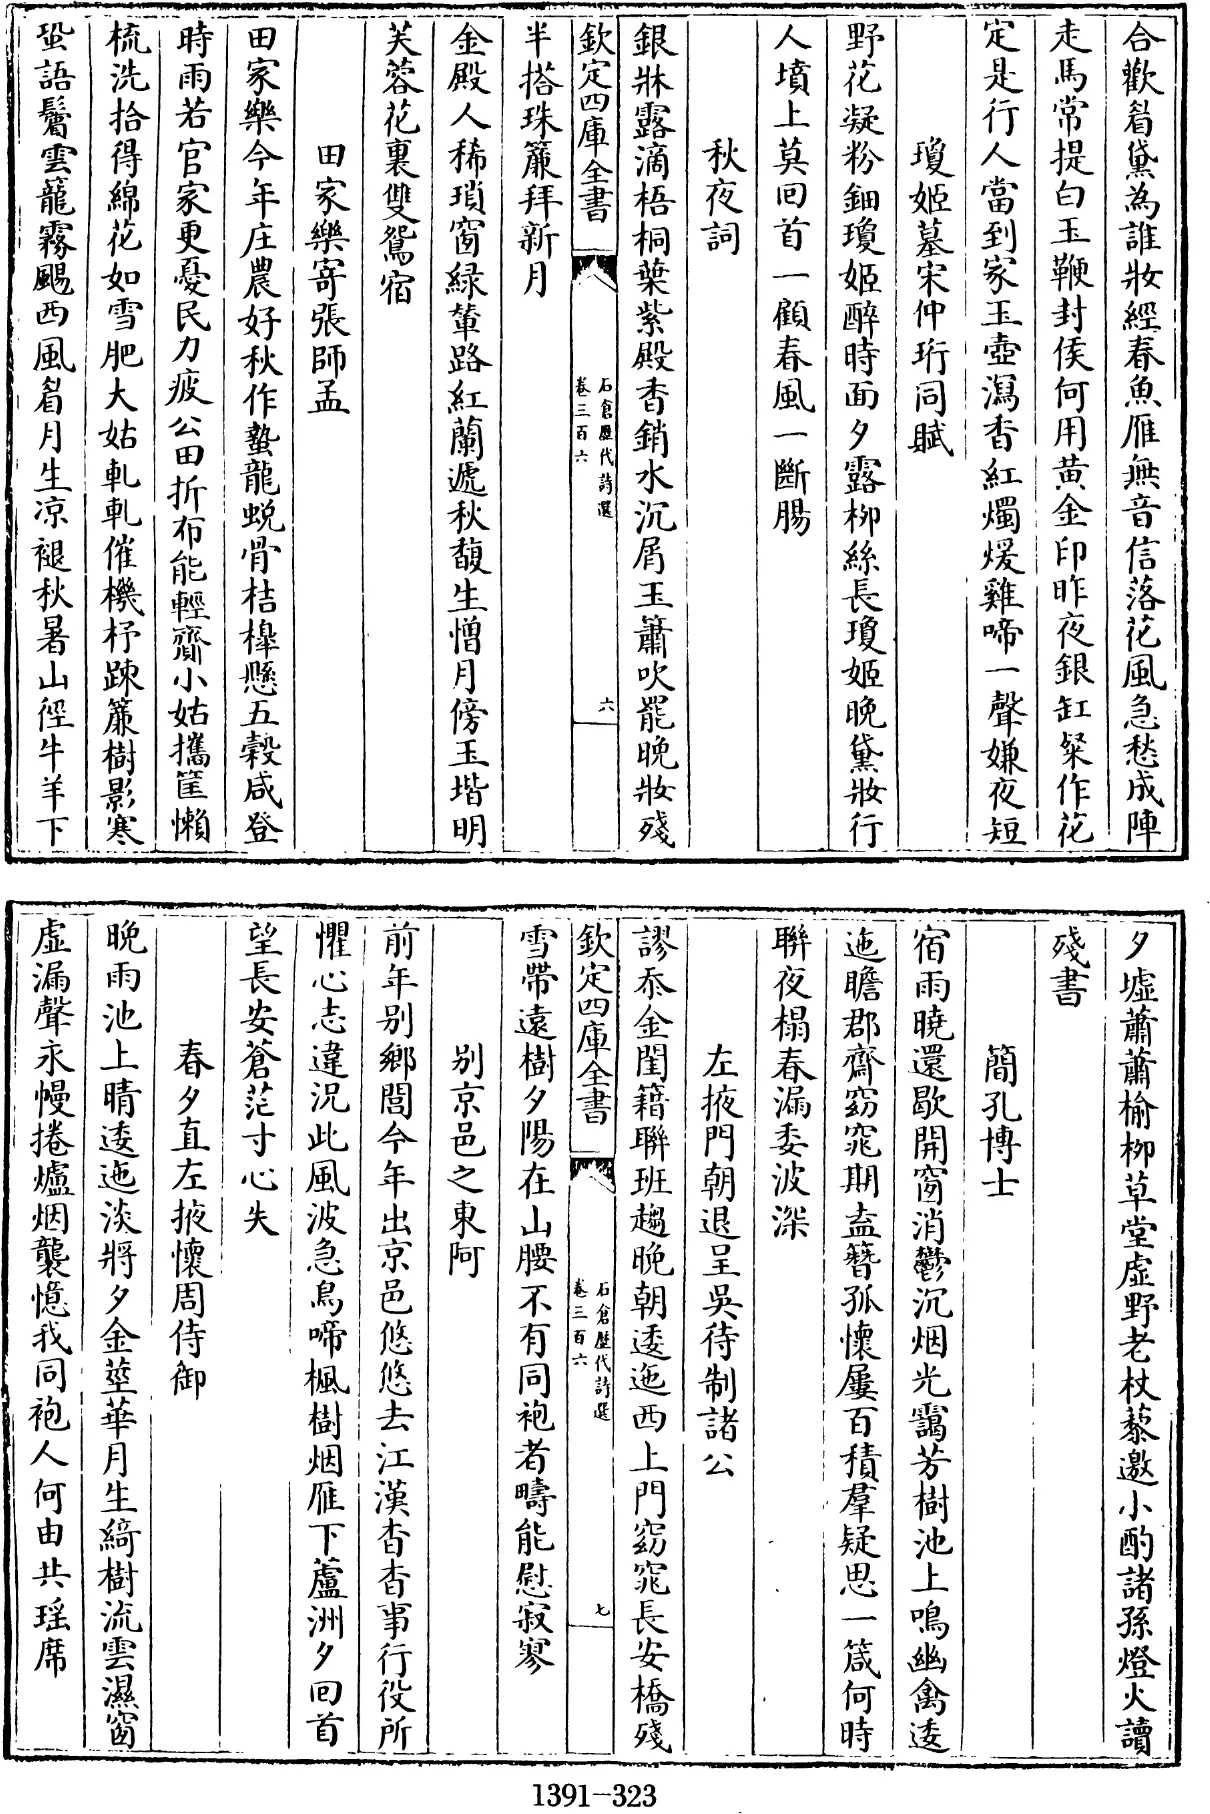 合歡眉黛為誰妝經春魚雁無音信落花風急愁成陣
走馬常提白玉鞭封侯何用黄金印昨夜銀缸粲作花
定是行人當到家玉壺瀉香紅燭煖雞啼一聲嫌夜短
瓊姬墓宋仲珩同賦
野花凝粉鈿瓊姬醉時面夕露柳絲長瓊姬晚黛妝行
人墳上莫回首一顧春風一斷腸
秋夜詞
銀牀露滴梧桐葉紫殿香銷水沉屑玉簫吹罷晚妝殘
欽定四庫全書
石倉歷代詩選
卷三百六
六
半搭珠簾拜新月
金殿人稀瑣窗緑輦路紅蘭遞秋馥生憎月傍玉堦明
芙蓉花裏雙鴛宿
田家樂寄張師孟
田家樂今年庄農好秋作蟄龍蜕骨桔橰懸五穀咸登
時雨若官家更憂民力疲公田折布能輕齎小姑攜筐懶
梳洗拾得綿花如雪肥大姑軋軋催機杼踈簾樹影寒
蛩語鬢雲籠霧颺西風眉月生凉褪秋暑山徑牛羊下
夕墟蕭蕭榆柳草堂虚野老杖藜邀小酌諸孫燈火讀
殘書
簡孔博士
宿雨曉還歇開窗消鬱沉烟光靄芳樹池上鳴幽禽逶
迤瞻郡齋窈窕期盍簪孤懷屢百積羣疑思一箴何時
聯夜榻春漏委波深
左掖門朝退呈吳待制諸公
謬忝金閨籍聯班趨晚朝逶迤西上門窈窕長安橋殘
欽定四庫全書
石倉歷代詩選
卷三百六
七
雪帶遠樹夕陽在山腰不有同袍者疇能慰寂寥
别京邑之東阿
前年别鄉閭今年出京邑悠悠去江漢杳杳事行役所
懼心志違況此風波急鳥啼楓樹烟雁下蘆洲夕回首
望長安蒼茫寸心失
春夕直左掖懷周侍御
晩雨池上晴逶迤淡將夕金莖華月生綺樹流雲濕窗
虚漏聲永幔捲爐烟襲憶我同袍人何由共瑶席
1391-323